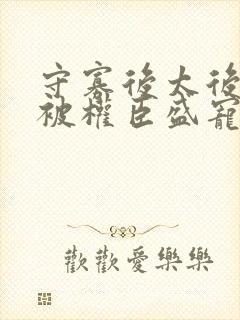 守寡後太後
被權臣盛寵
歡歡愛樂樂